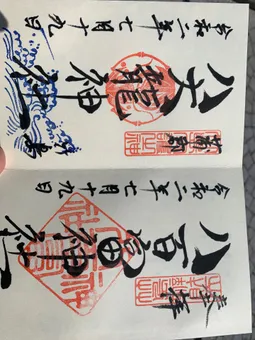 奉拝
八百富神社
令和二年七月十九日
蒲郡 竹島
八大龍神社
令和二年七月十九日